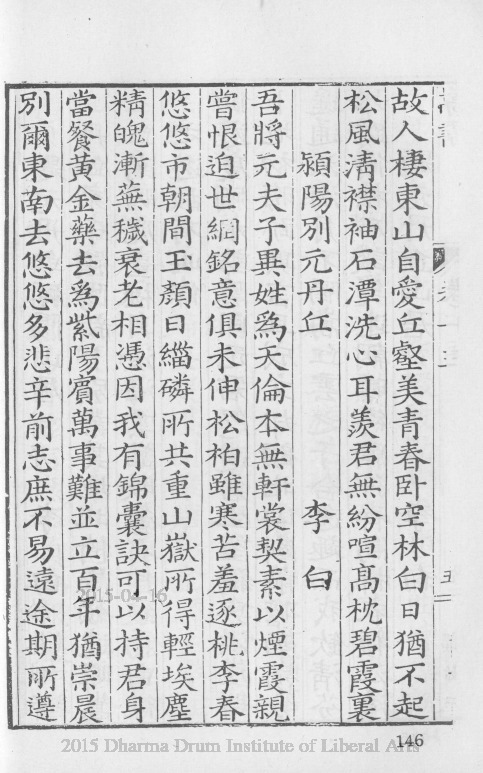 故人棲東山自愛丘壑美青春卧空林白日猶不起
松風淸襟袖石潭洗心耳羨君無紛喧髙枕碧霞裏
潁陽別元丹丘 李白
吾將元夫子異姓爲天倫本無軒裳契素以煙霞親
嘗恨迫世網銘意俱未伸松柏雖寒苦羞逐桃李春
悠悠市朝間玉顔日緇磷所共重山嶽所得輕埃塵
精魄漸蕪穢衰老相憑因我有錦囊訣可以持君身
當餐黄金藥去爲紫陽賓萬事難並立百年猶崇晨
別爾東南去悠悠多悲辛前志庶不易遠途期所遵
2015-04-16
146
2015 Dharma Drum Institute of Liberal Arts